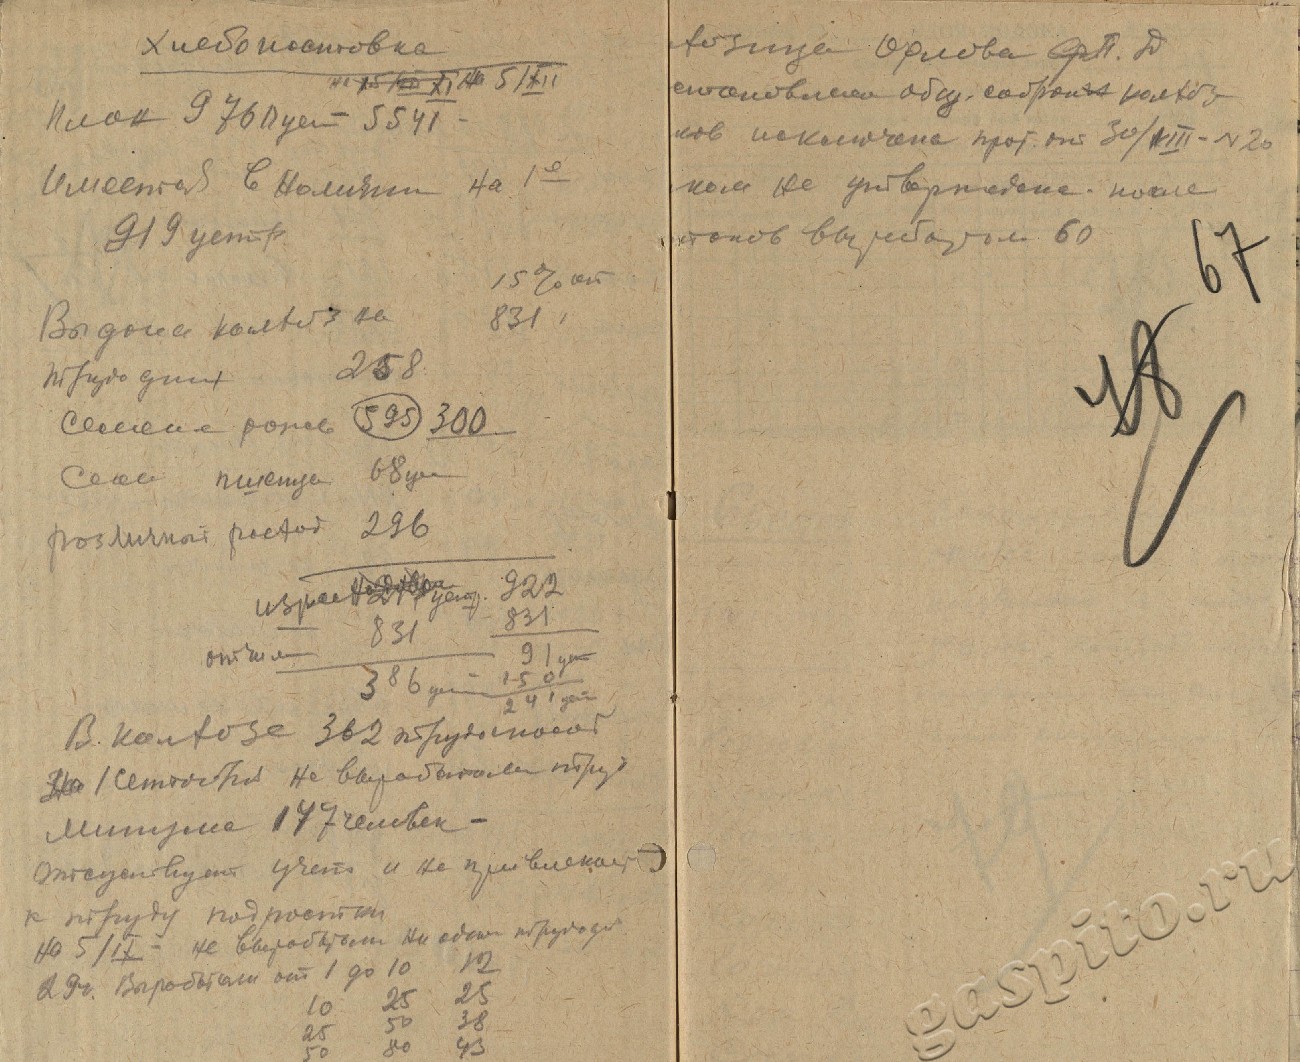 Хлебопоставка
на 5/XII
План 976 5541 -
Имеется в наличии на 1е
919 цент
15% от
Выдана колхоз на 831
трудодни 258
Семена рожь 595 300
Сем пшеница 68 ц
различный расход 296
922
831 831
отчисл 91 цен
386 цен 150
241 цен
В колхозе 362 трудоспособ
На 1 Сентября не выработали труд
Минимума 147 человек -
Отсутствует учет и не привлекают
к труду подростки
На 5/IX - не выработали ни один трудодн
29ч. Выработали от 1 до 10 12
10 25 25
25 50 38
50 80 43
хозница Орлова П. Д
становлена общ. собран колхоз
ков исключена прот. от 30/VIII - N 20
ком не утверждена. после
выработала 60
67
gaspito.ru